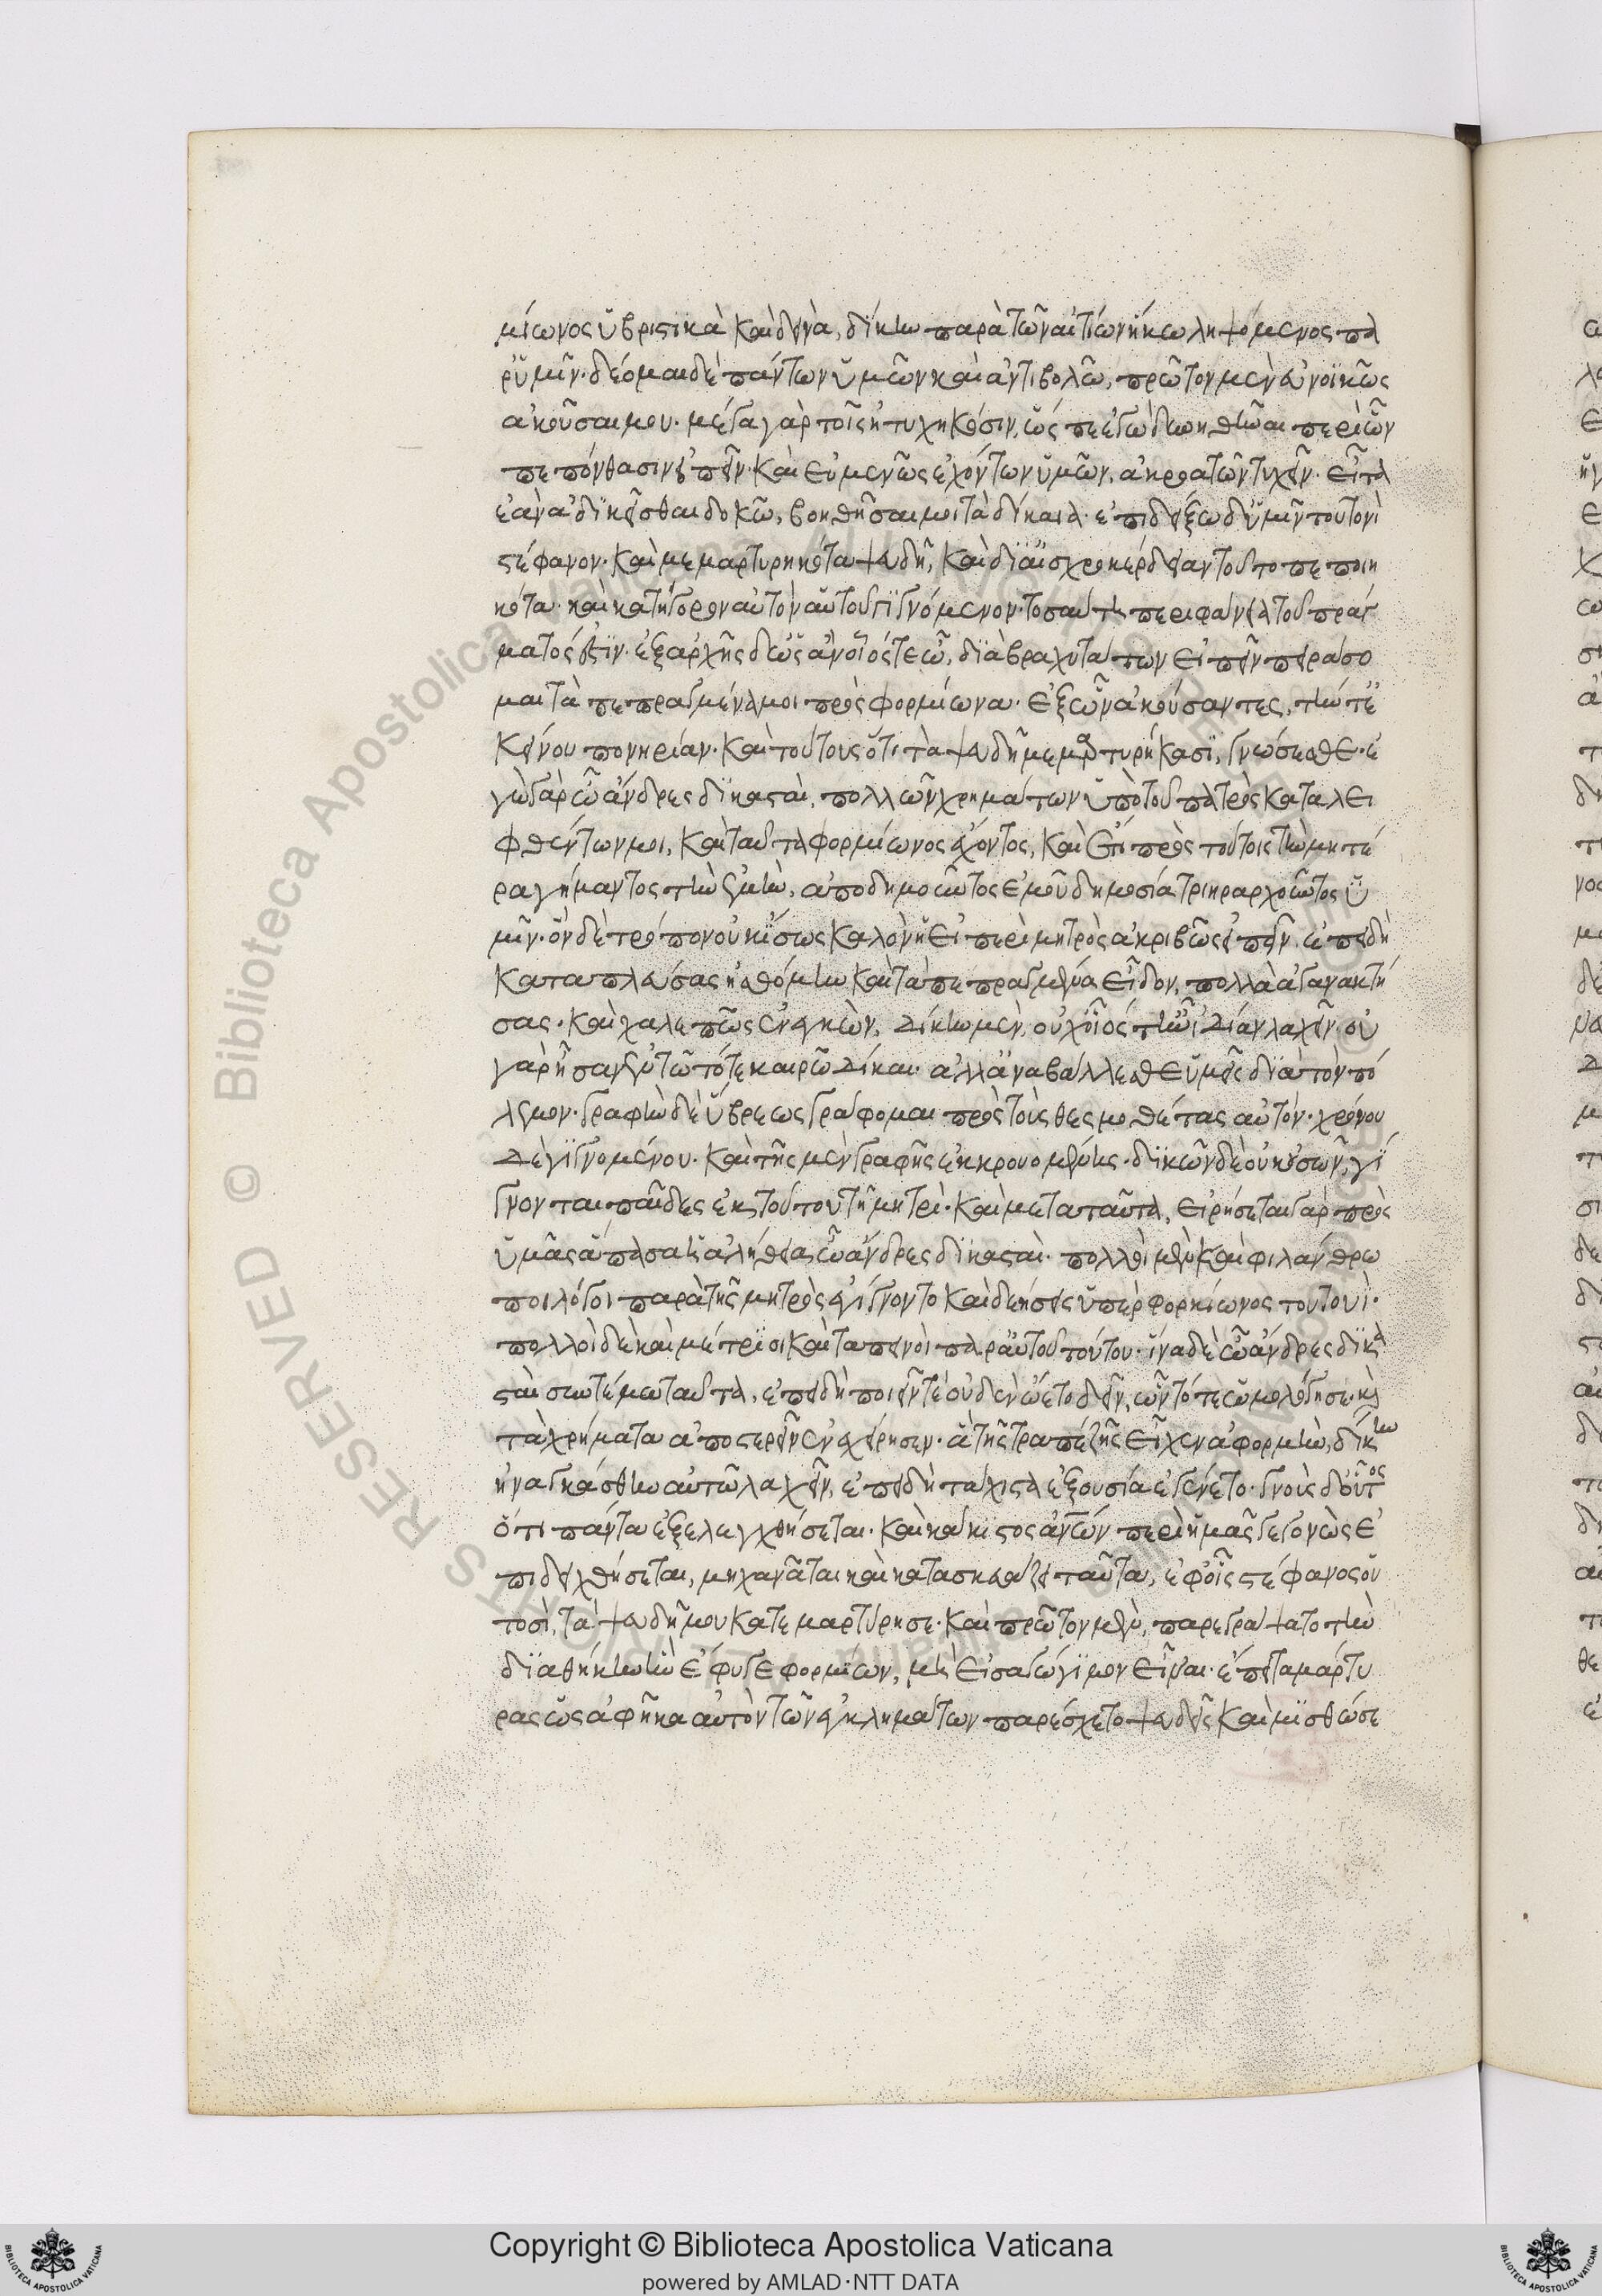 μίωνος ὑβριστικὰ καὶ δεινὰ, δίκην παρὰ τῶν αἰτίων ἥκω ληψόμενος πα
ρ ὑμῖν· δέομαι δὲ πάντων ὑμῶν καὶ ἀντιβολῶ, πρῶτον μὲν εὐνοϊκῶς
ἀκοῦσαι μου· μέγα γὰρ τοῖς ἠτυχηκόσιν, ὥς περ ἐγὼ δυνηθῆναι περὶ ὧν
πεπόνθασιν εἰπεῖν· καὶ εὐμενῶς ἐχόντων ὑμῶν, ἀκροατῶν τυχεῖν· εἶτα
ἐὰν ἀδικεῖσθαι δοκῶ, βοηθῆσαι μοι τὰ δίκαια· ἐπιδείξω δ ὑμῖν τουτονὶ
στέφανον· καὶ μεμαρτυρηκότα ψευδῆ, καὶ δι αἰσχροκέρδειαν τοῦτο πεποιη
κότα· καὶ κατήγορον αὐτὸν αὑτοῦ γιγνόμενον· τοσαύτη περιφάνεια τοῦ πράγ
ματός ἐστιν· ἐξ ἀρχῆς δ ὡς ἂν οἷός τε ὦ, διὰ βραχυτάτων εἰπεῖν πειράσο
μαι τὰ πεπραγμένα μοι πρὸς φορμίωνα· ἐξ ὧν ἀκούσαντες, τήν τε ἐ
κείνου πονηρίαν· καὶ τούτους ὅτι τὰ ψευδῆ μεμαρτυρήκασι, γνώσεσθε· ἐ
γὼ γὰρ ὦ ἄνδρες δικασταὶ, πολλῶν χρημάτων ὑπὸ τοῦ πατρὸς καταλει
φθέντων μοι, καὶ ταῦτα φορμίωνος ἔχοντος, καὶ ἔτι πρὸς τούτοις τὴν μητέ
ρα γήμαντος τὴν ἐμὴν, ἀποδημοῦντος ἐμοῦ δημοσίᾳ τριηραρχοῦντος ὑ
μῖν· ὃν δὲ τρόπον οὐκ ἴσως καλὸν υἱεῖ περὶ μητρὸς ἀκριβῶς εἰπεῖν· ἐπειδὴ
καταπλεύσας ᾐσθόμην καὶ τὰ πεπραγμένα εἶδον, πολλὰ ἀγανακτή
σας· καὶ χαλεπῶς ἐνεγκὼν, δίκην μὲν, οὐχ οἷός τ ἦν ἰδίαν λαχεῖν· οὐ
γὰρ ἦσαν ἐν τῷ τότε καιρῷ δίκαι· ἀλλ ἀνεβάλλεσθε ὑμεῖς διὰ τὸν πό
λεμον· γραφὴν δὲ ὕβρεως γράφομαι πρὸς τοὺς θεσμοθέτας αὐτόν· χρόνου
δὲ γιγνομένου· καὶ τῆς μὲν γραφῆς ἐκκρουομένης· δικῶν δὲ οὐκ οὐσῶν, γί
γνονται παῖδες ἐκ τούτου τῇ μητρὶ· καὶ μετα ταῦτα, εἰρήσεται γὰρ πρὸς
ὑμᾶς ἅπασα ἡ ἀλήθεια, ὦ ἄνδρες δικασταὶ· πολλοὶ μὲν καὶ φιλάνθρω
ποι λόγοι παρὰ τῆς μητρὸς ἐγίγνοντο καὶ δεήσεις ὑπὲρ φορμίωνος τουτουὶ·
πολλοὶ δὲ καὶ μέτριοι καὶ ταπεινοὶ παρ αὐτοῦ τούτου· ἵνα δὲ ὦ ἄνδρες δικα
σταὶ συντέμω ταῦτα, ἐπειδὴ ποιεῖν τε οὐδὲν ᾤετο δεῖν, ὧν τότε ὡμολόγησε· κὶ
τὰ χρήματα ἀποστερεῖν ἐνεχείρησεν· ἃ τῆς τραπέζης εἶχεν ἀφορμὴν, δίκην
ἠναγκάσθην αὐτῷ λαχεῖν, ἐπειδὴ τάχιστα ἐξουσία ἐγένετο· γνοὺς δ οὗτος
ὅτι πάντα ἐξελεγχθήσεται· καὶ κάκιστος ἀνθρώπων περὶ ἡμᾶς γεγονὼς ἐ
πιδειχθήσεται, μηχανᾶται καὶ κατασκευάζει ταῦτα, ἐφ οἷς στέφανος οὑ
τοσὶ, τὰ ψευδῆ μου κατεμαρτύρησε· καὶ πρῶτον μὲν, παρεγράψατο τὴν
δίαθήκην ἣν ἔφυγε φορμίων, μὴ εἰσαγώγιμον εἶναι· ἔπειτα μάρτυ
ρας ὡς ἀφῆκα αὐτὸν τῶν ἐγκλημάτων παρέσχετο ψευδεῖς καὶ μισθώσε